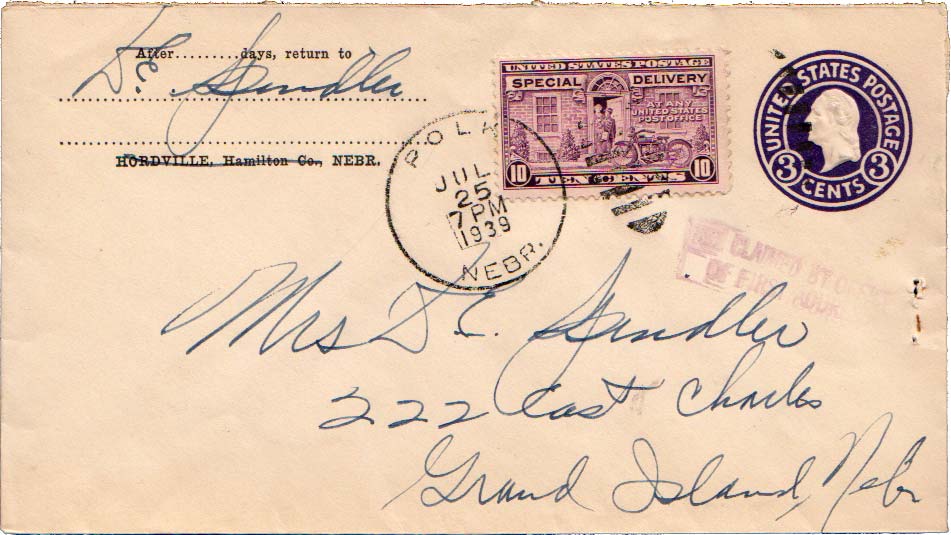 After.........days, return to
D.E. Hendler
HORDVILLE, Hamilton Co., NEBR.
UNITED STATES POSTAGE
SPECIAL DELIVERY
AT ANY
UNITED STATES
POST OFFICE
10 TEN CENTS 10
POLK
JUL
25
7 PM
1939
NEBR.
UNITED STATES POSTAGE
3 CENTS 3
CLAIMED BY OFFICE
OF FIRST ADDRESS
Mrs D.E. Hendler
222 East Charles
Grand Island, Nebr